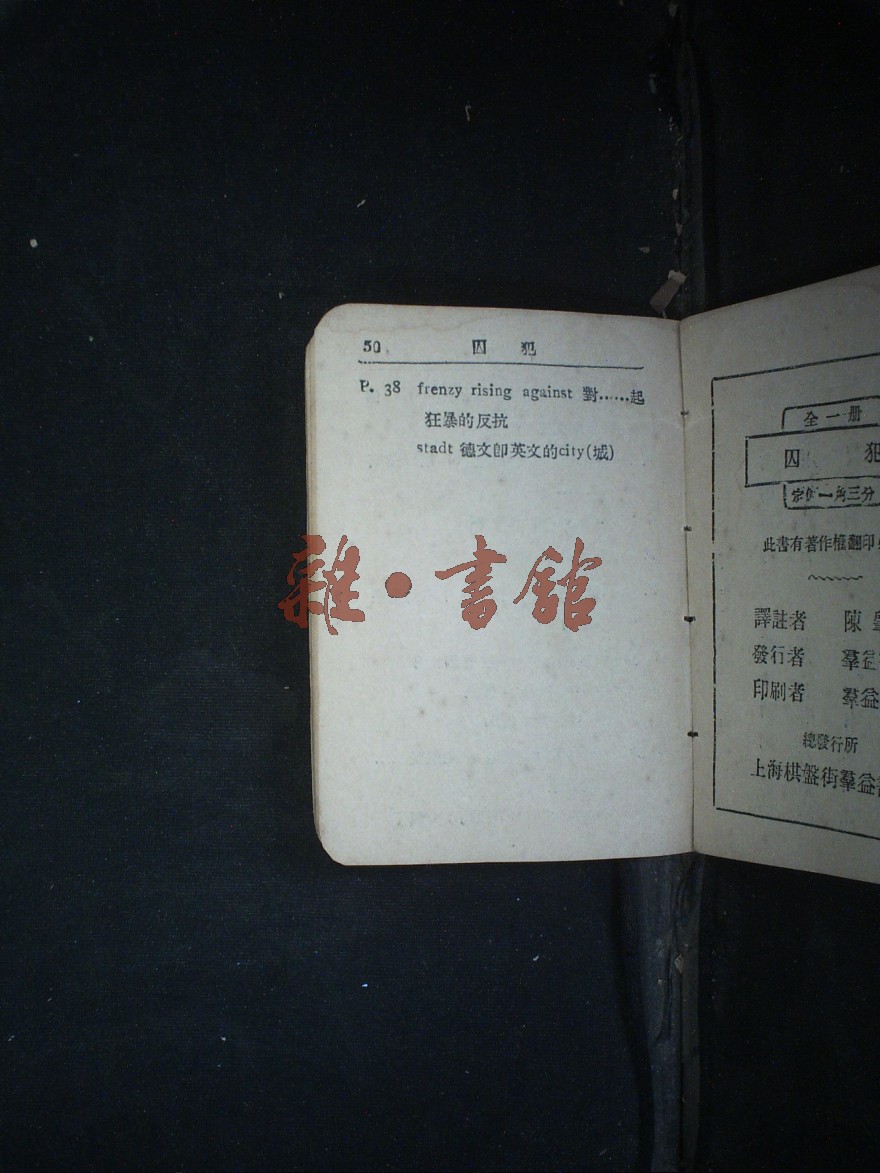 50 囚 犯
P. 38 frenzy rising against 對……起
狂暴的反抗
stadt 德文卽英文的city(城)
雜·書館
全一册
囚 犯
定價一角三分
此書有著作權翻印
譯註者 陳
發行者 羣益
印刷者 羣益
總發行所
上海棋盤街羣益